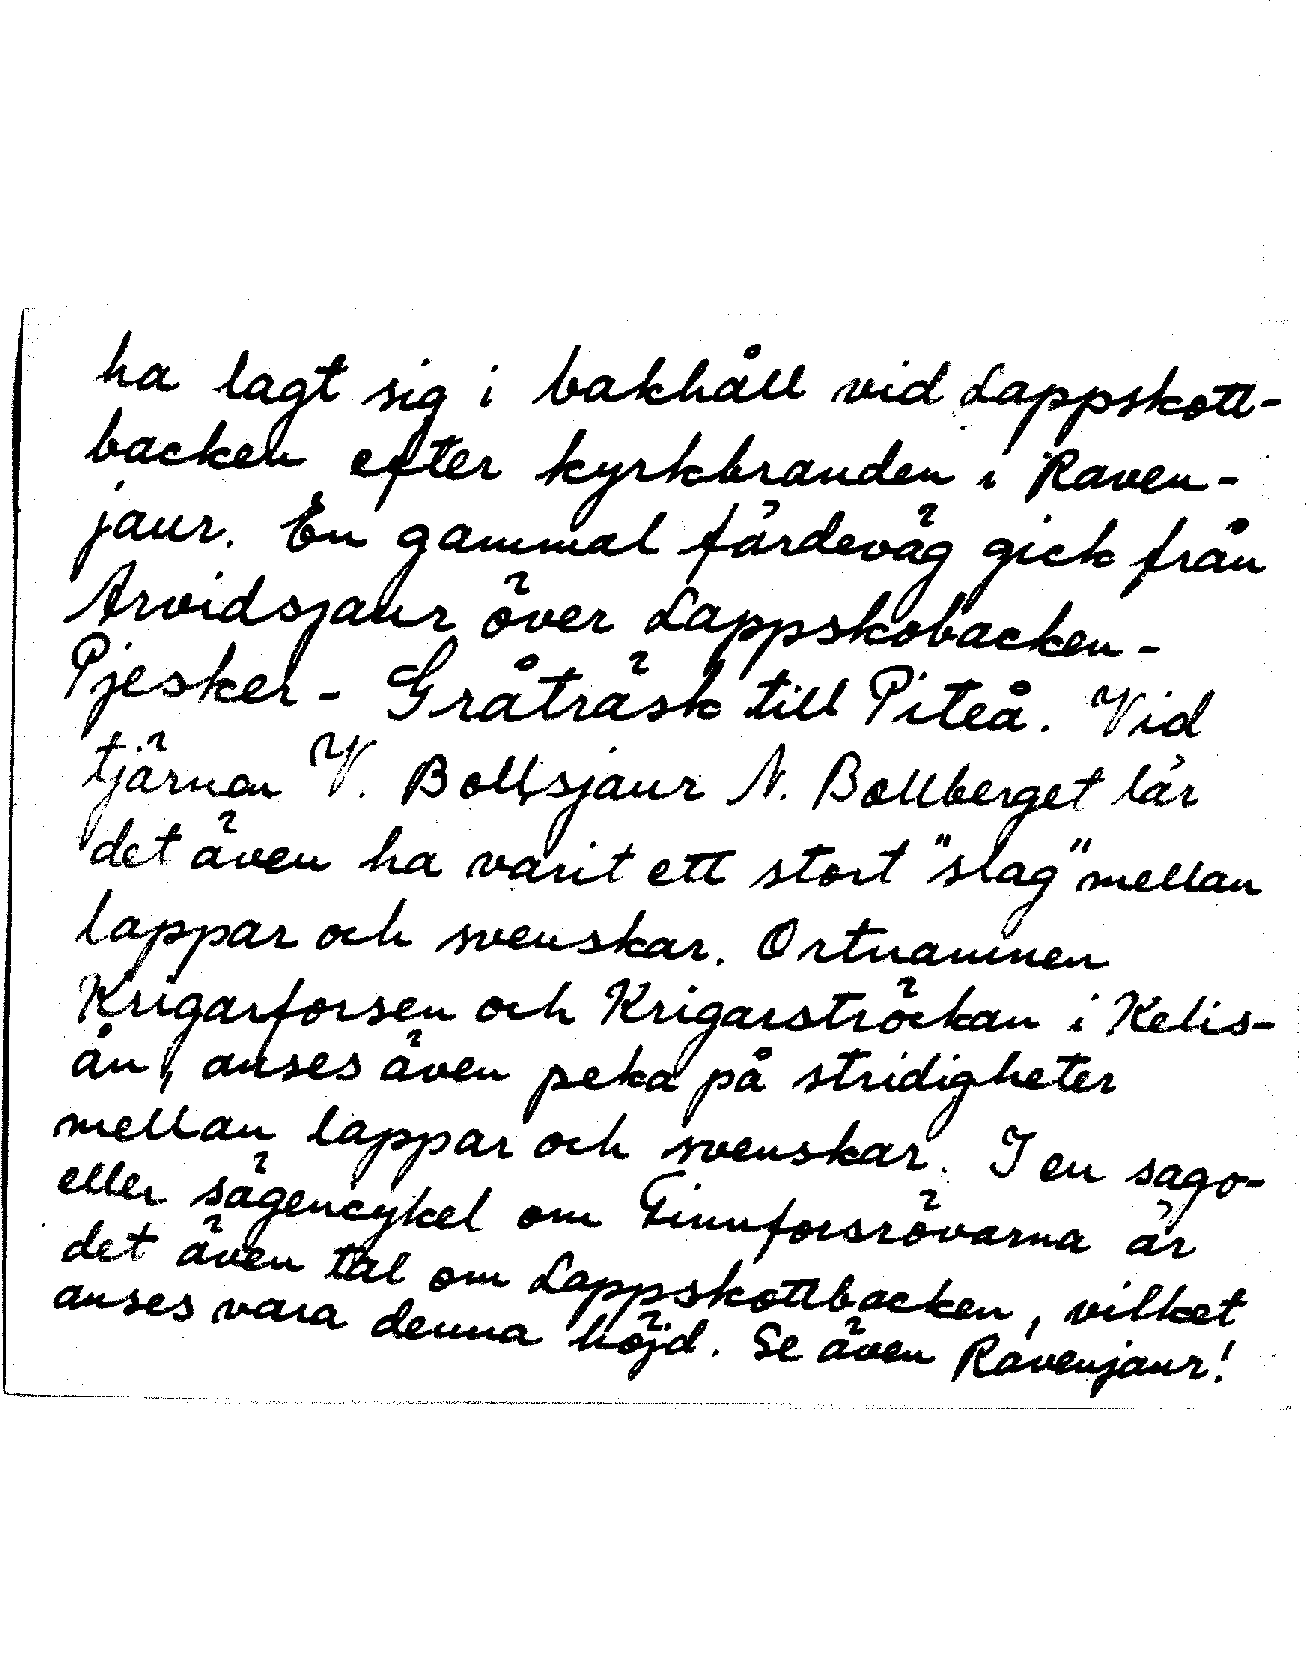 ha lagt sig i bakhåll vid Lappskott-
backen efter kyrkbranden i Raven-
jaur. En gammal färdeväg gick från
Arvidsjaur över Lappskobacken-
Pjesker - Gråträsk till Piteå. Vid
tjärnen V. Bollsjaur N. Bollberget lär
det även ha varit ett stort "slag" mellan
lappar och svenskar. Ortnamnen
Krigarforsen och Krigarströckan i Kelis-
ån, anses även peka på stridigheter
mellan lappar och svenskar. I en sago-
eller sägencykel om Finnforsrövarna är
det även tal om Lappskottbacken, vilket
anses vara denna höjd. Se även Ravenjaur!